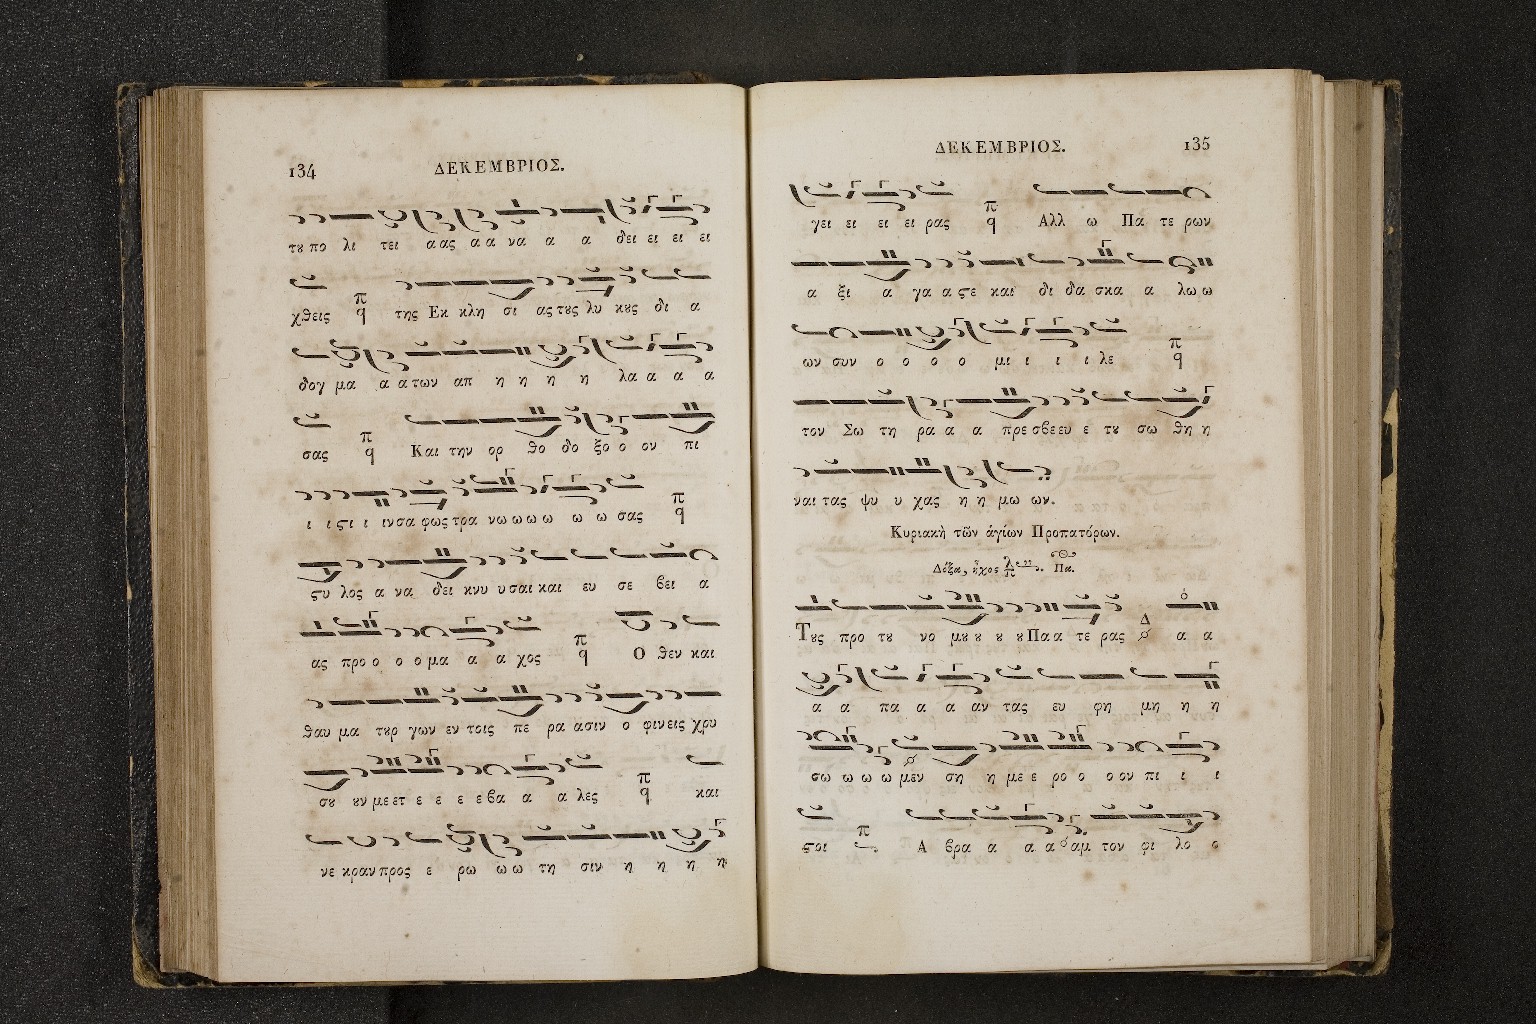 134
ΔΕΚΕΜΒΡΙΟΣ.
τȣ πο λι τει α ας α α να α α δει ει ει ει
χθεις π q της Εκ κλη σι ας τȣς λυ κȣς δι α
δογ μα α α των απ η η η η λα α α α
σας π q Και την ορ θο δο ξο ο ον πι
ι ι ϛι ι ιν σα φως τρα νω ω ω ω ω ω σας π q
ϛυ λος α να δει κνυ υ σαι και ευ σε βει α
ας προ ο ο ο μα α α χος π q Ο θεν και
θαυ μα τȣρ γων εν τοις πε ρα α σιν ο φι νεις χρυ
σȣ ȣν με ετ ε ε ε ε βα α α λες π q και
νε κραν προς ε ρω ω ω τη σιν η η η η
ΔΕΚΕΜΒΡΙΟΣ.
135
γει ει ει ει ρας π q Αλλ ω Πα τε ρων
α ξι α γα α ϛε και δι δα σκα α λω ω
ων συν ο ο ο ο μι ι ι ι λε π q
τον Σω τη ρα α α πρε σβε ευ ε τȣ σω θη η
ναι τας ψυ υ χας η η μω ων.
Κυριακὴ τῶν ἁγίων Προπατόρων.
Δόξα, ἦχος Πα.
Τȣς προ τȣ νο μȣ ȣ ȣ ȣ Πα α τε ρας Δ α α
α α πα α α αν τας ευ φη μη η η
σω ω ω ω μεν ση η με ε ρο ο ο ον πι ι ι
ϛοι π Α βρα α α α αμ τον φι λο ο